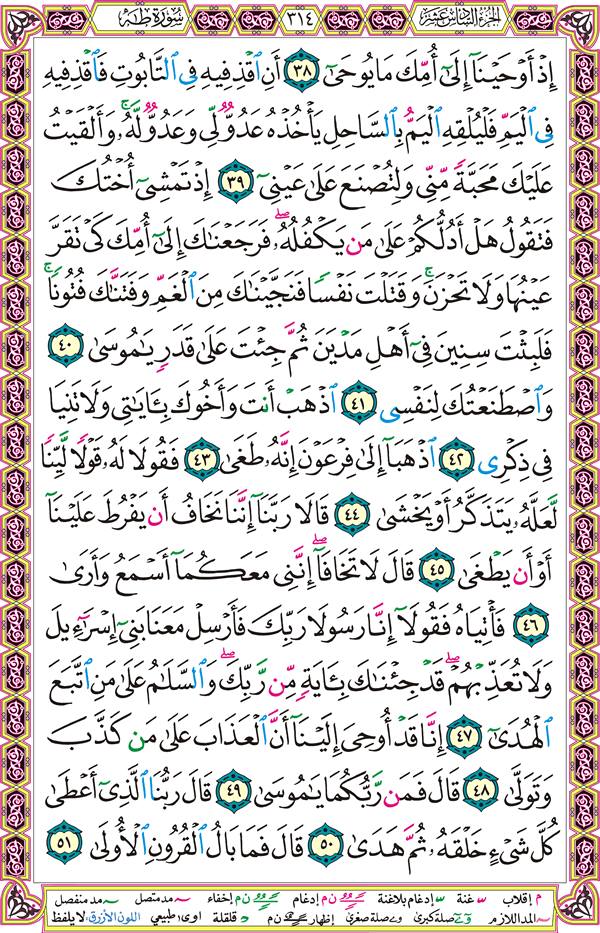 الجزء السادس عشر ٣١٤ سورة طه
إِذْ أَوْحَيْنَآ إِلَىٰٓ أُمِّكَ مَا يُوحَىٰٓ ٣٨ أَنِ ٱقْذِفِيهِ فِى ٱلتَّابُوتِ فَٱقْذِفِيهِ
فِى ٱلْيَمِّ فَلْيُلْقِهِ ٱلْيَمُّ بِٱلسَّاحِلِ يَأْخُذْهُ عَدُوٌّ لِّى وَعَدُوٌّ لَّهُۥۚ وَأَلْقَيْتُ
عَلَيْكَ مَحَبَّةً مِّنِّى وَلِتُصْنَعَ عَلَىٰ عَيْنِىٓ ٣٩ إِذْ تَمْشِىٓ أُخْتُكَ
فَتَقُولُ هَلْ أَدُلُّكُمْ عَلَىٰ مَن يَكْفُلُهُۥۖ فَرَجَعْنَٰكَ إِلَىٰٓ أُمِّكَ كَىْ تَقَرَّ
عَيْنُهَا وَلَا تَحْزَنَۚ وَقَتَلْتَ نَفْسًا فَنَجَّيْنَٰكَ مِنَ ٱلْغَمِّ وَفَتَنَّٰكَ فُتُونًاۚ
فَلَبِثْتَ سِنِينَ فِىٓ أَهْلِ مَدْيَنَ ثُمَّ جِئْتَ عَلَىٰ قَدَرٍ يَٰمُوسَىٰ ٤٠
وَٱصْطَنَعْتُكَ لِنَفْسِى ٤١ ٱذْهَبْ أَنتَ وَأَخُوكَ بِـَٔايَٰتِى وَلَا تَنِيَا
فِى ذِكْرِى ٤٢ ٱذْهَبَآ إِلَىٰ فِرْعَوْنَ إِنَّهُۥ طَغَىٰ ٤٣ فَقُولَا لَهُۥ قَوْلًا لَّيِّنًا
لَّعَلَّهُۥ يَتَذَكَّرُ أَوْ يَخْشَىٰ ٤٤ قَالَا رَبَّنَآ إِنَّنَا نَخَافُ أَن يَفْرُطَ عَلَيْنَآ
أَوْ أَن يَطْغَىٰ ٤٥ قَالَ لَا تَخَافَآۖ إِنَّنِى مَعَكُمَآ أَسْمَعُ وَأَرَىٰ
٤٦ فَأْتِيَاهُ فَقُولَآ إِنَّا رَسُولَا رَبِّكَ فَأَرْسِلْ مَعَنَا بَنِىٓ إِسْرَٰٓءِيلَ
وَلَا تُعَذِّبْهُمْۖ قَدْ جِئْنَٰكَ بِـَٔايَةٍ مِّن رَّبِّكَۖ وَٱلسَّلَٰمُ عَلَىٰ مَنِ ٱتَّبَعَ
ٱلْهُدَىٰٓ ٤٧ إِنَّا قَدْ أُوحِىَ إِلَيْنَآ أَنَّ ٱلْعَذَابَ عَلَىٰ مَن كَذَّبَ
وَتَوَلَّىٰ ٤٨ قَالَ فَمَن رَّبُّكُمَا يَٰمُوسَىٰ ٤٩ قَالَ رَبُّنَا ٱلَّذِىٓ أَعْطَىٰ
كُلَّ شَىْءٍ خَلْقَهُۥ ثُمَّ هَدَىٰ ٥٠ قَالَ فَمَا بَالُ ٱلْقُرُونِ ٱلْأُولَىٰ ٥١
م إقلاب غنة إدغام بلاغنة ن م إدغام ن م إخفاء مد متصل مد منفصل
المد اللازم صلة كبرى صلة صغرى إظهار ن م قلقلة اوى طبيعي اللون الأزرق لا يلفظ